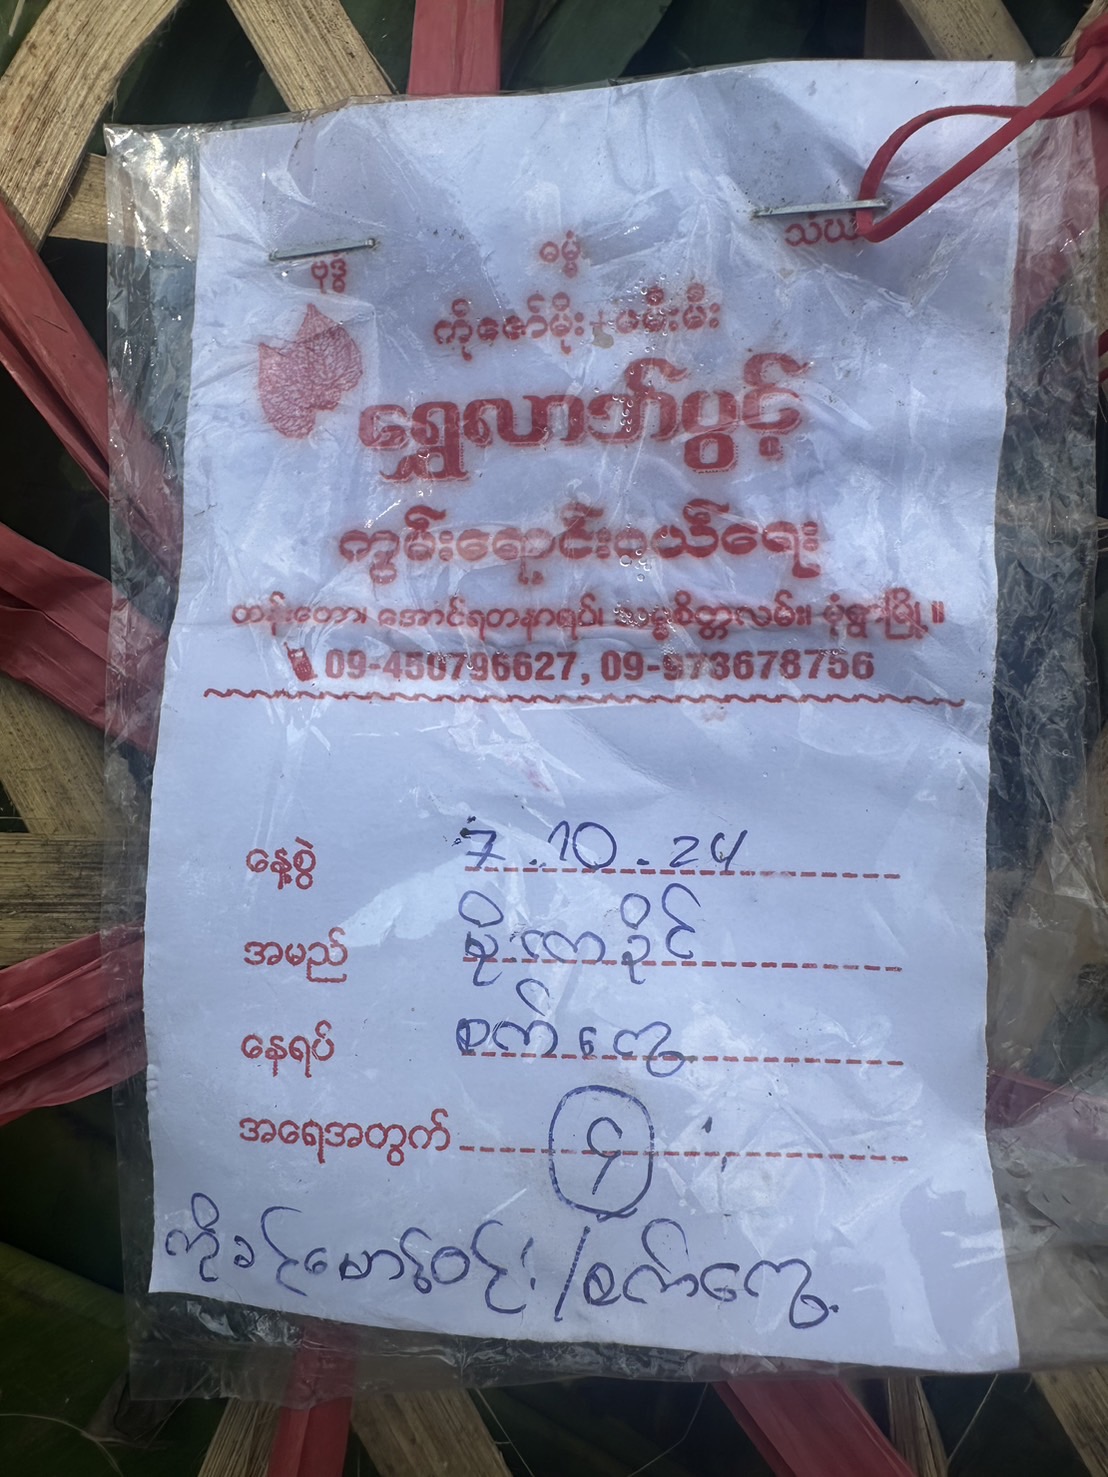 ဗုဒ္ဓံ ဓမ္မံ သံဃံ
ကိုဇော်မိုး+မမီးမီး
ရွှေလာဘ်ပွင့်
ကွမ်းရောင်းဝယ်ရေး
တန်းတော၊ အောင်ရတနာရပ်၊ သမ္မစိတ္တလမ်း။ မုံရွာမြို့။
09-450796627, 09-973678756
နေ့စွဲ 7.10.24
အမည် စိုးဏခိုင်
နေရပ် စက်ကွေ့
အရေအတွက် ၄
ကိုခင်မောင်ဝင်း/စက်ကွေ့